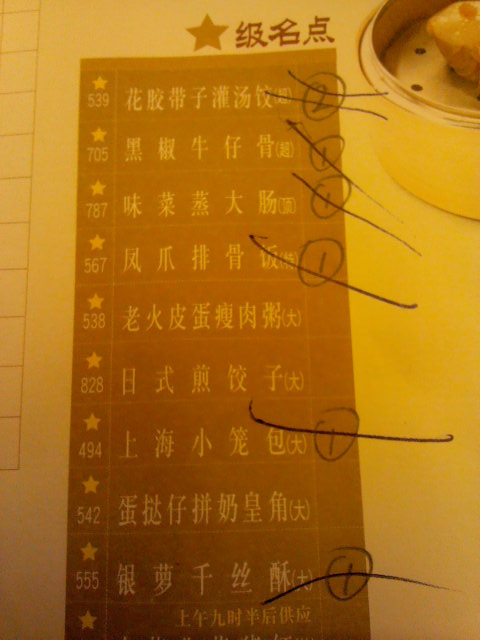 ★级名点
★ 539 花胶带子灌汤饺(超) 2
★ 705 黑椒牛仔骨(超) 1
★ 787 味菜蒸大肠(顶) 1
★ 567 凤爪排骨饭(特) 1
★ 538 老火皮蛋瘦肉粥(大)
★ 828 日式煎饺子(大)
★ 494 上海小笼包(大) 1
★ 542 蛋挞仔拼奶皇角(大)
★ 555 银萝千丝酥(大) 1
★ 上午九时半后供应